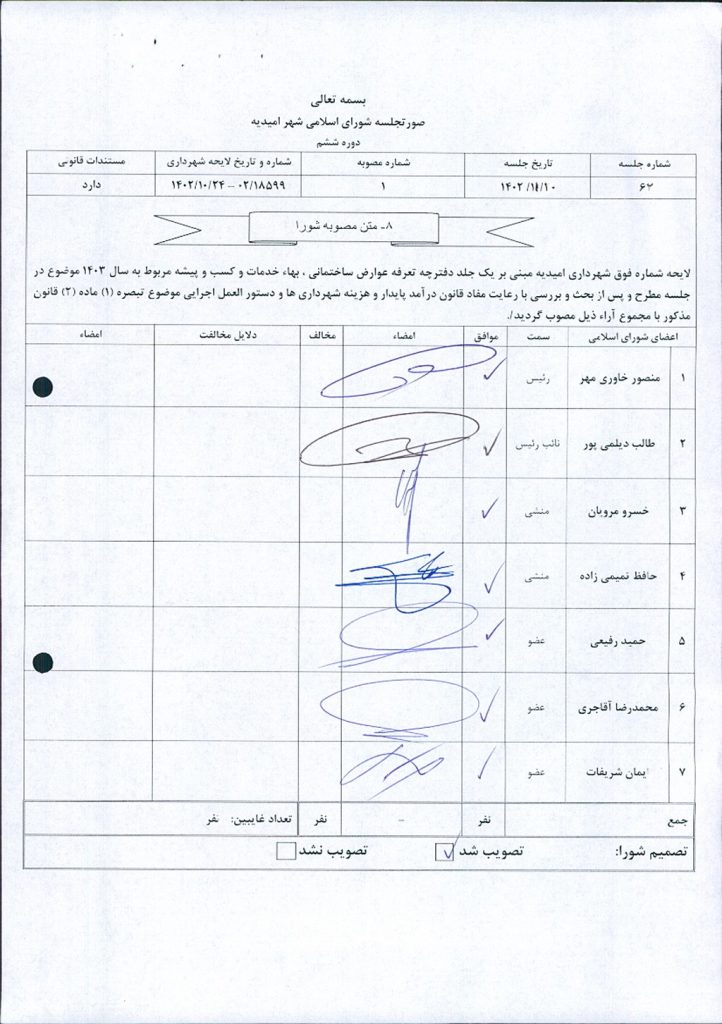 بسمه تعالی
صورتجلسه شورای اسلامی شهر امیدیه
دوره ششم
شماره جلسه تاریخ جلسه شماره مصوبه شماره و تاریخ لایحه شهرداری مستندات قانونی
۶۲ ۱۴۰۲/۱۱/۱۰ ۱ ۰۲/۱۸۵۹۹ – ۱۴۰۲/۱۰/۲۴ دارد
۸ـ متن مصوبه شورا
لایحه شماره فوق شهرداری امیدیه مبنی بر یک جلد دفترچه تعرفه عوارض ساختمانی ، بهاء خدمات و کسب و پیشه مربوط به سال ۱۴۰۳ موضوع در
جلسه مطرح و پس از بحث و بررسی با رعایت مفاد قانون درآمد پایدار و هزینه شهرداری ها و دستور العمل اجرایی موضوع تبصره (۱) ماده (۲) قانون
مذکور با مجموع آراء ذیل مصوب گردید/.
اعضای شورای اسلامی سمت موافق امضاء مخالف دلایل مخالفت امضاء
۱ منصور خاوری مهر رئیس
۲ طالب دیلمی پور نائب رئیس
۳ خسرو مرویان منشی
۴ حافظ تمیمی زاده منشی
۵ حمید رفیعی عضو
۶ محمدرضا آقاجری عضو
۷ ایمان شریفات عضو
جمع نفر - نفر تعداد غایبین: نفر
تصمیم شورا: تصویب شد تصویب نشد